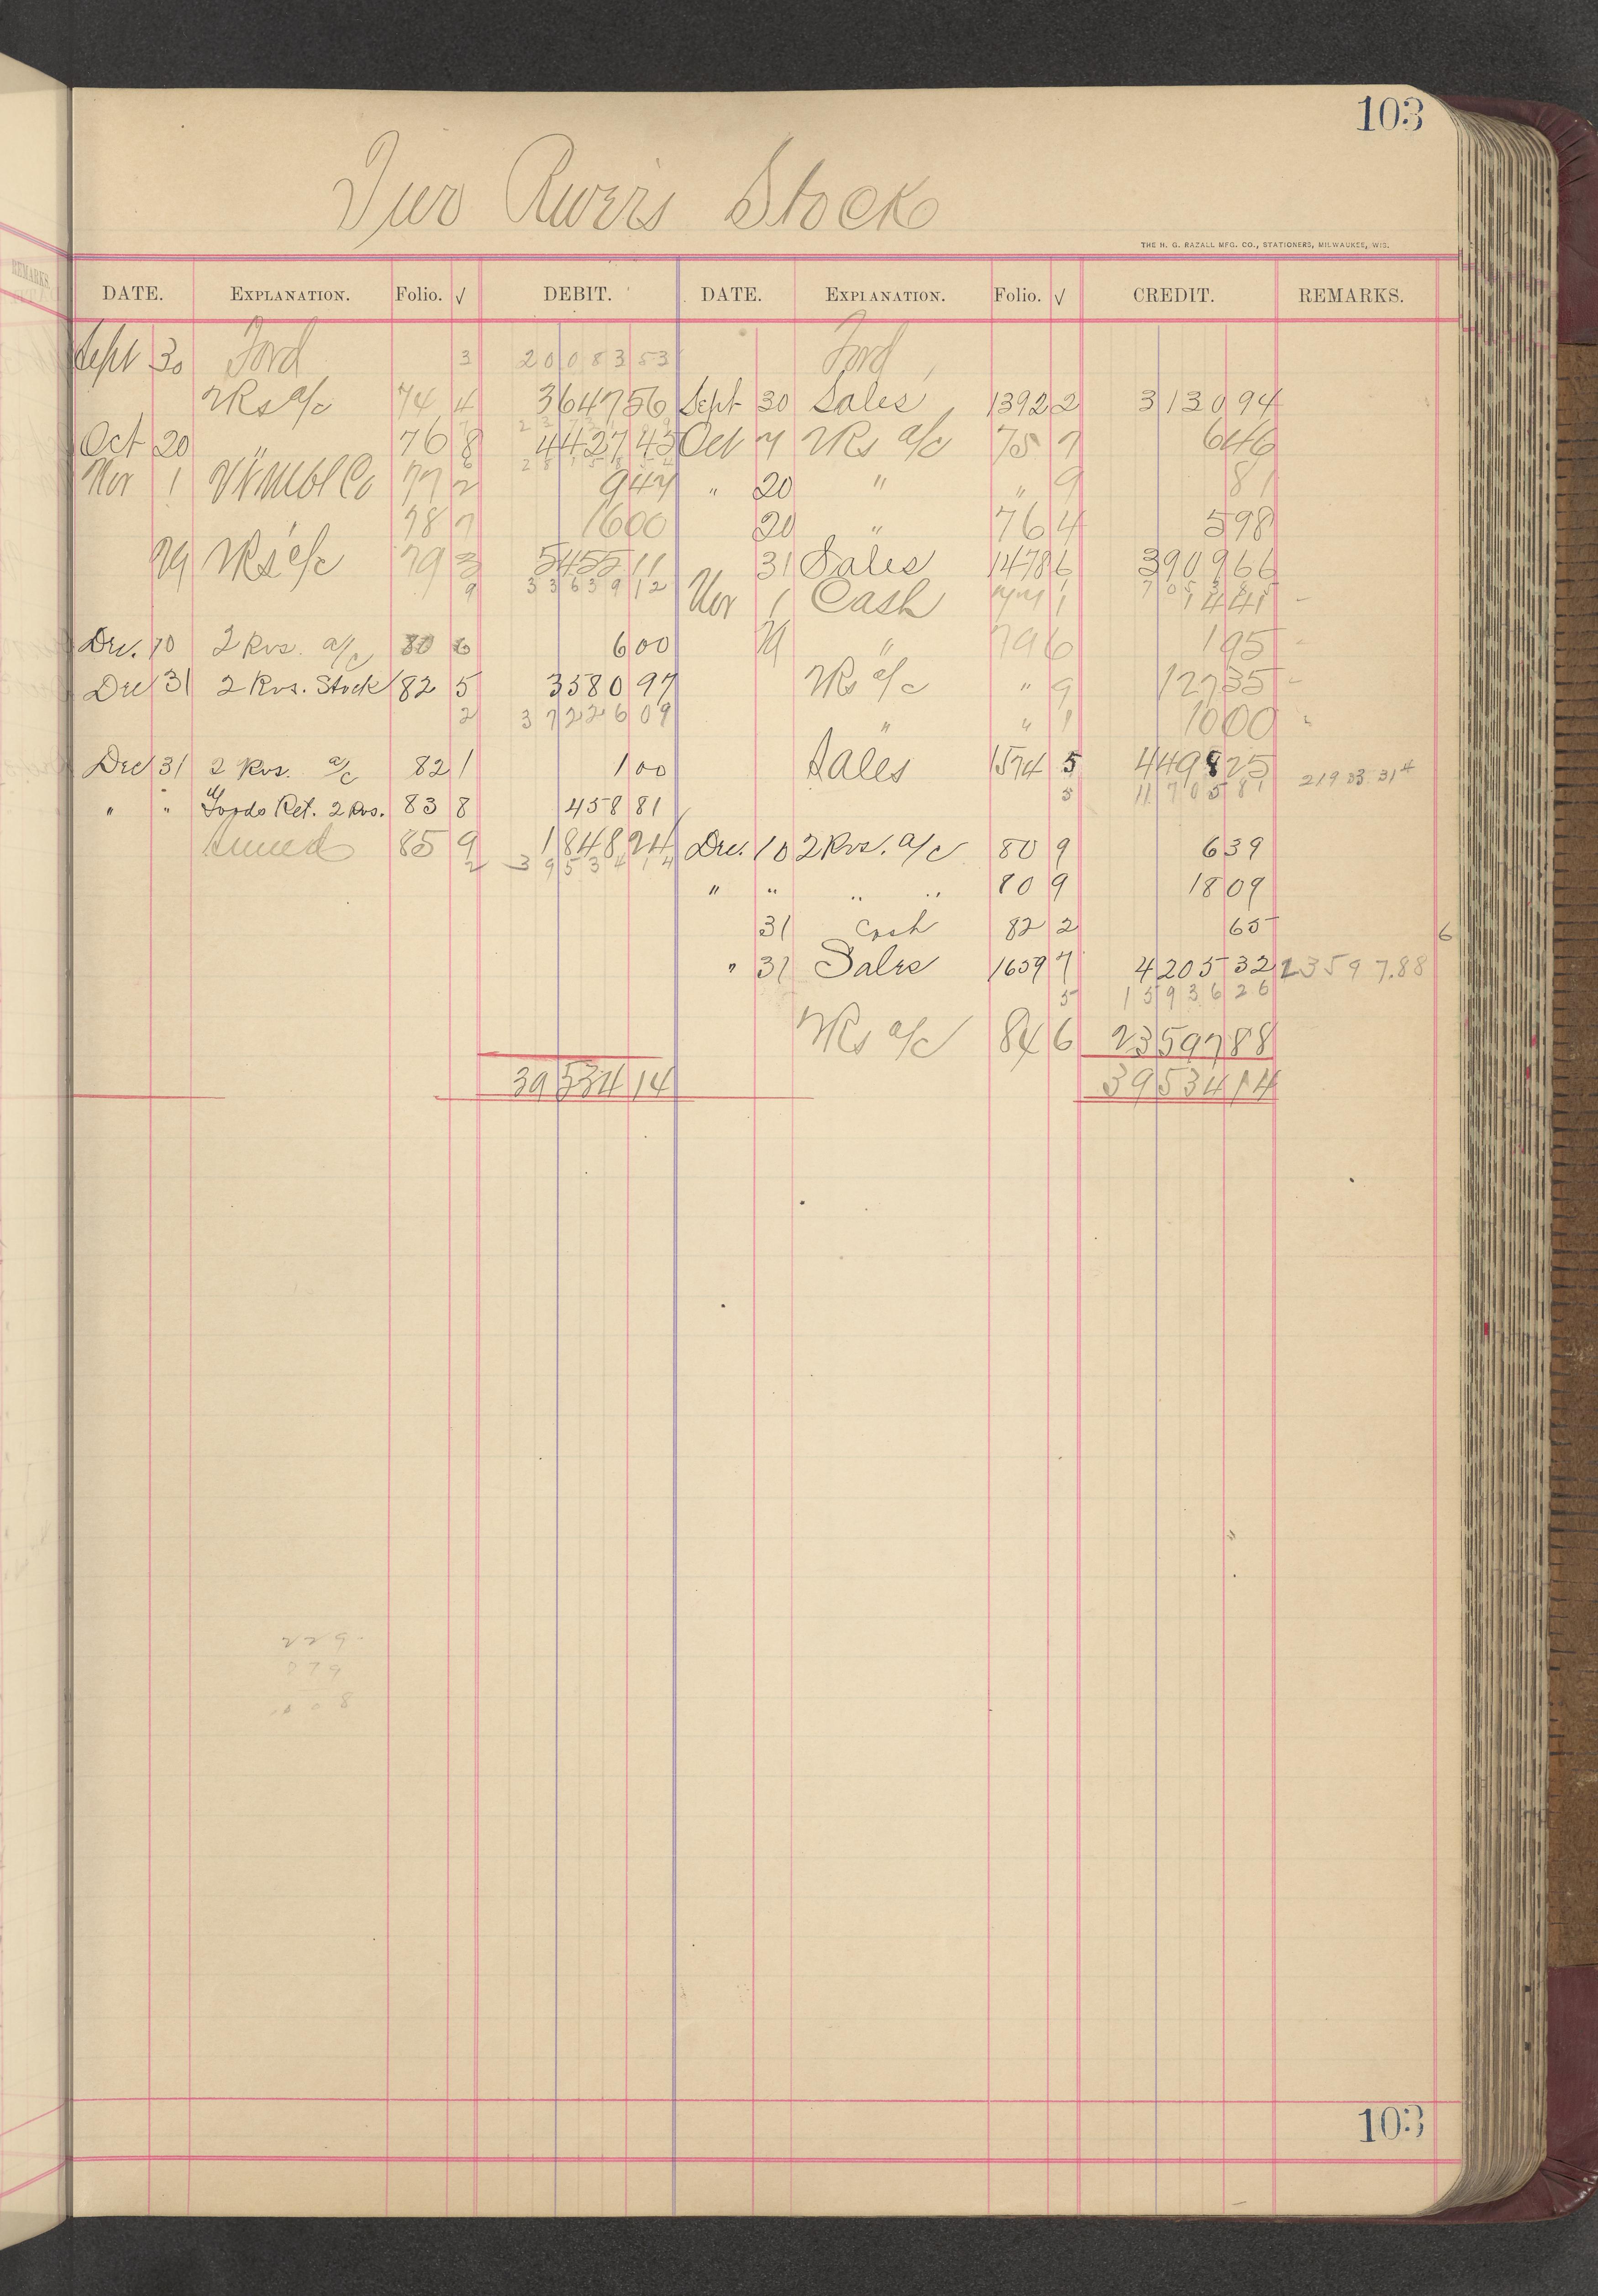 103
Two Rivers Stock
THE H. G. RAZALL MFG. CO., STATIONERS, MILWAUKEE, WIS.
DATE. EXPLANATION. Folio. √ DEBIT. DATE. EXPLANATION. Folio. √ CREDIT. REMARKS.
Sept 30 Ford 3 20083 53 Ford
2Rs a/c 74 4 3647 56 Sept 30 Sales 1392 2 3130 94
Oct 20 76 8 4427 45 Oct 7 2Rs a/c 75 7 6 46
Nov 1 Co 77 2 9 47 " 20 " " 9 81
78 7 16 00 20 " 76 4 5 98
29 2Rs a/c 79 3 5455 11 31 Sales 1478 6 3909 66
9 33639 12 Nov 1 Cash 77 1 14 41
Dec. 10 2 Rvs. a/c 80 6 6 00 29 " 79 6 1 95
Dec 31 2 Rvs. Stock 82 5 3580 97 2Rs a/c " 9 127 35
2 37226 09 " " 1 10 00
Dec 31 2 Rvs. a/c 82 1 1 00 Sales 1574 5 4498 25 21933.31
" " Goods Ret. 2 Rvs. 83 8 458 81 5 11705 81
85 9 1848 24 Dec. 10 2 Rvs. a/c 80 9 6 39
2 39534 14 " " " " 80 9 18 09
31 Cash 82 2 65
6
" 31 Sales 1659 7 4205 32 23597.88
5 15936 26
2Rs a/c 84 6 23597 88
39534 14 39534 14
229
879
103